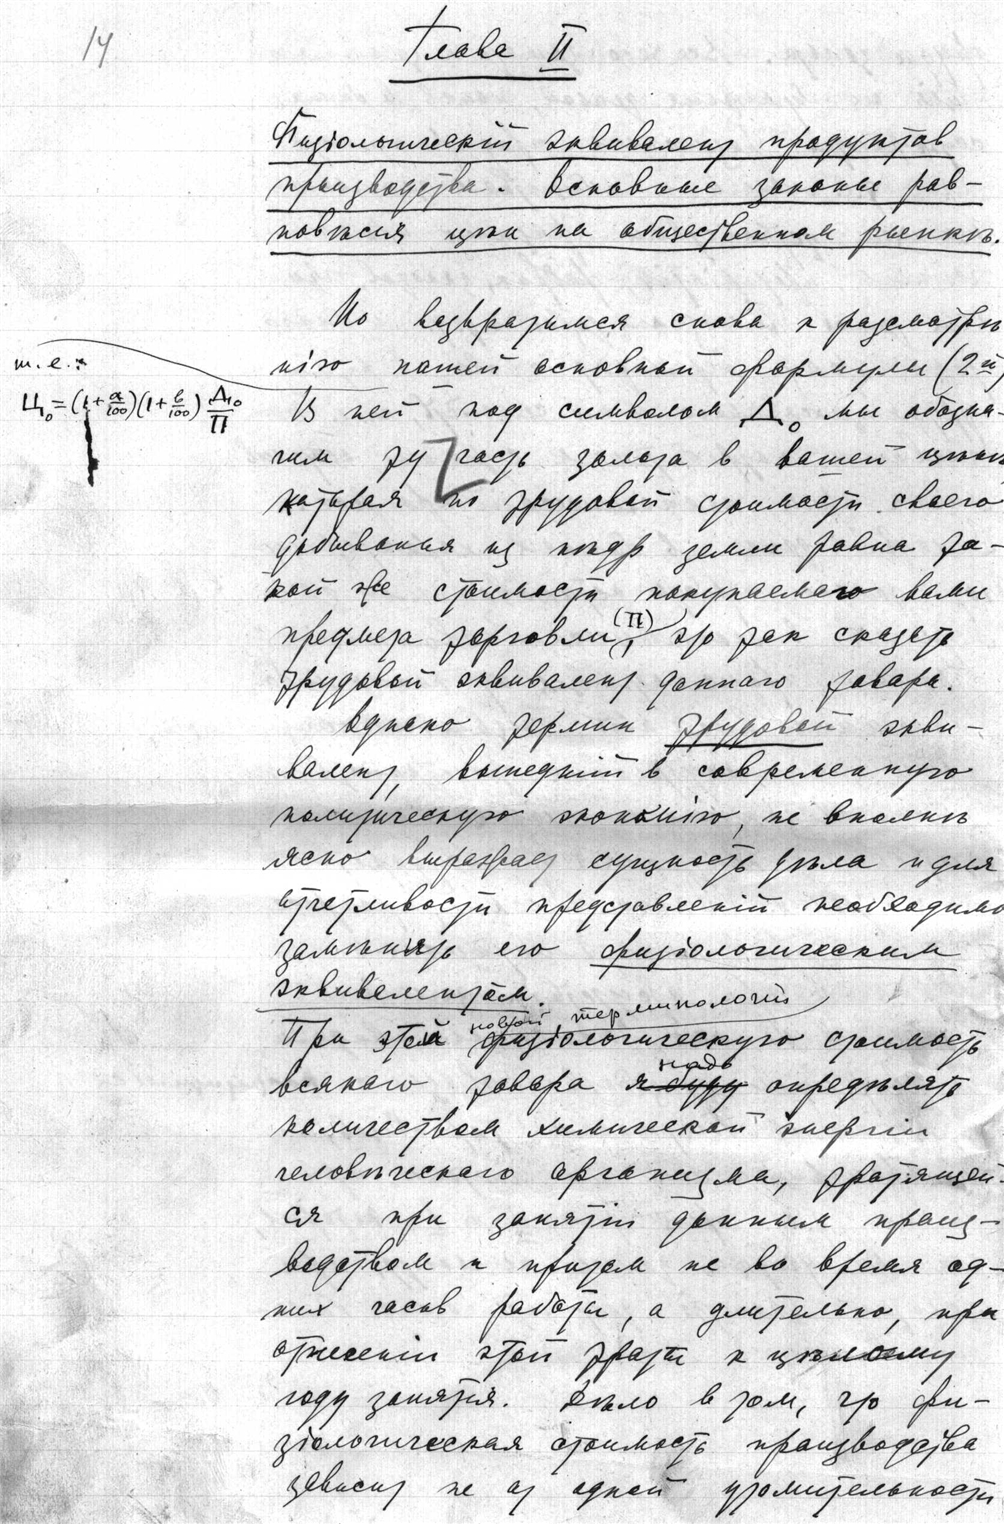 14
Глава II
Физіологическій эквивалент продуктов
производства. Основные законы рав-
новѣсия цѣн на общественном рынкѣ.
Но возвратимся снова к разсмотрѣ
нію нашей основной формулы (2й)
т. е.:
Ц₀=(1+a/100)(1+b/100) Д₀/П
В ней под символом Д₀ мы обозна-
чим ту часть золота в вашей цѣнѣ
которая по трудовой стоимости своего
добывания из нѣдр земли равна та-
кой же стоимости покупаемаго вами
предмета торговли (П), это так сказать
трудовой эквивалент даннаго товара.
Однако термин трудовой экви-
валент, вошедшій в современную
политическую экономію, не вполнѣ
ясно выражает сущность дѣла и для
отчетливости представленій необходимо
замѣнить его физіологическим
эквивалентом.
При этой новой терминологіи физіологическую стоимость
всякаго товара я буду надо опредѣлять
количеством химической энергіи
человѣческаго организма, тратящей-
ся при занятіи данным произ-
водством и притом не во время од-
них часов работы, а длительно, при
отнесеніи этой траты к цѣлому
году занятія. Дѣло в том, что фи-
зіологическая стоимость производства
зависит не от одной утомительности